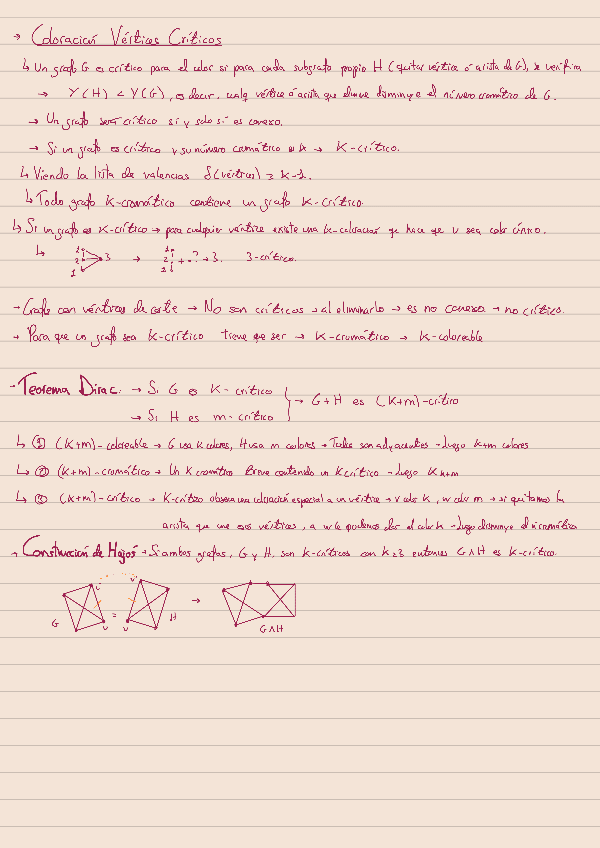 → Coloración Vértices Críticos
↳ Un grafo G es crítico para el color si para cada subgrafo propio H (quitar vértice ó arista de G), se verifica
→ γ(H) < γ(G), es decir, cualq vértice ó arista que elimine disminuye el número cromático de G.
→ Un grafo será crítico si y solo si es conexo.
→ Si un grafo es crítico y su número cromático es k → K-crítico.
↳ Viendo la lista de valencias δ(vértices) ≥ k-1.
↳ Todo grafo K-cromático contiene un grafo K-crítico.
↳ Si un grafo es K-crítico → para cualquier vértice existe una k-coloración que hace que v sea color único.
↳ 1 2 1 3 → 1 2 1 + ·? → 3. 3-crítico.
→ Grafo con vértices de corte → No son críticos → al eliminarlo → es no conexo → no crítico.
→ Para que un grafo sea k-crítico tiene que ser → K-cromático → K-coloreable
→ Teorema Dirac: → Si G es K-crítico
→ Si H es m-crítico
→ G+H es (K+m)-crítico
↳ ① (K+m)-coloreable → G usa K colores, H usa m colores → Todos son adyacentes → luego k+m colores
↳ ② (k+m)-cromático → Un K cromático tiene contenido un K crítico → luego K k+m
↳ ③ (k+m)-crítico → K-crítico observa una coloración especial a un vértice → v color k, w color m → si quitamos la
arista que une esos vértices, a w le podemos dar el color k → luego disminuye el n cromático
→ Construcción de Hajós → Si ambos grafos, G y H, son k-críticos con k≥3 entonces G∧H es K-crítico.
G = H → G∧H